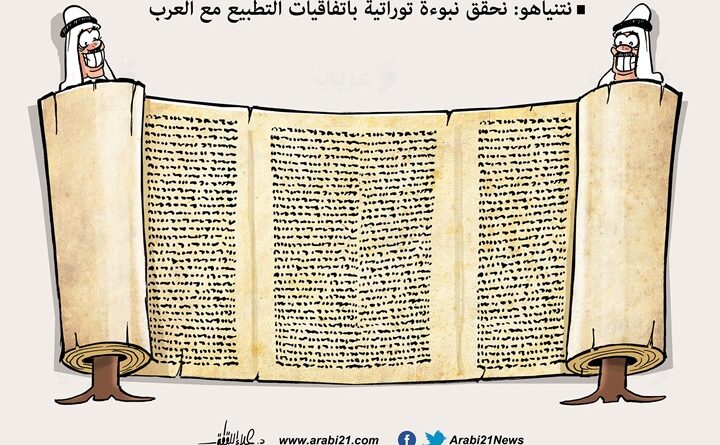 ▪ نتنياهو: نحقق نبوءة توراتية باتفاقيات التطبيع مع العرب
عربي
د. علاء اللقطة www.arabi21.com Arabi21News